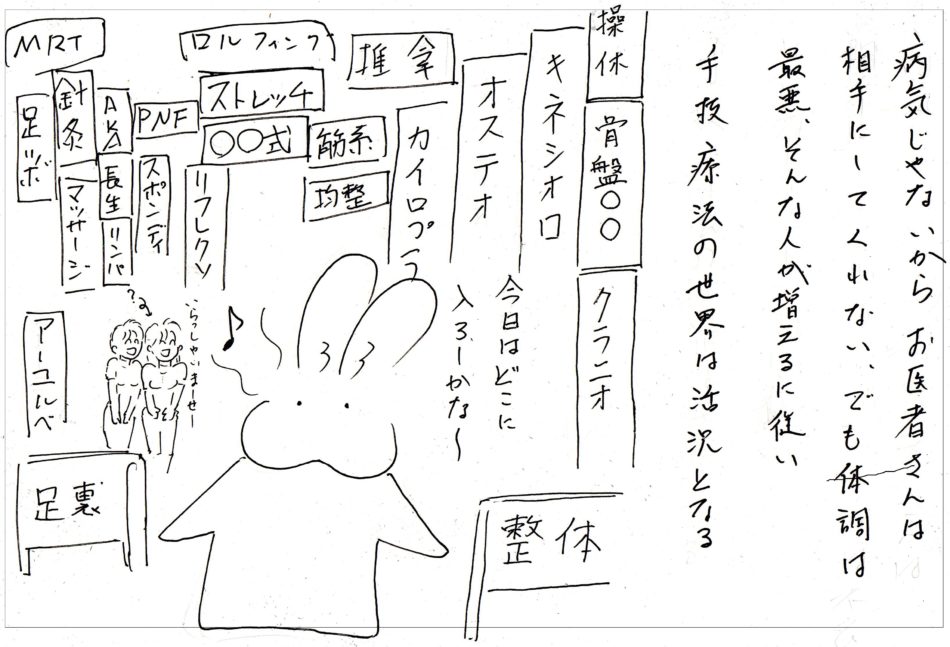 病気じゃないから お医者さんは
相手にしてくれない、でも体調は
最悪、そんな人が増えるに従い
手技療法の世界は活況となる
操体
骨盤〇〇
クラニオ
キネシオロ
オステオ
今日はどこに
入ろーかな〜
推拿
カイロプラ
ロルフィング
ストレッチ
〇〇式
筋系
均整
リフレクソ
PNF
スポンディ
MRT
針灸
マッサージ
AKA
長生
リンパ
足ツボ
アーユルベ
いらっしゃいまーせー
♪
足裏
整体